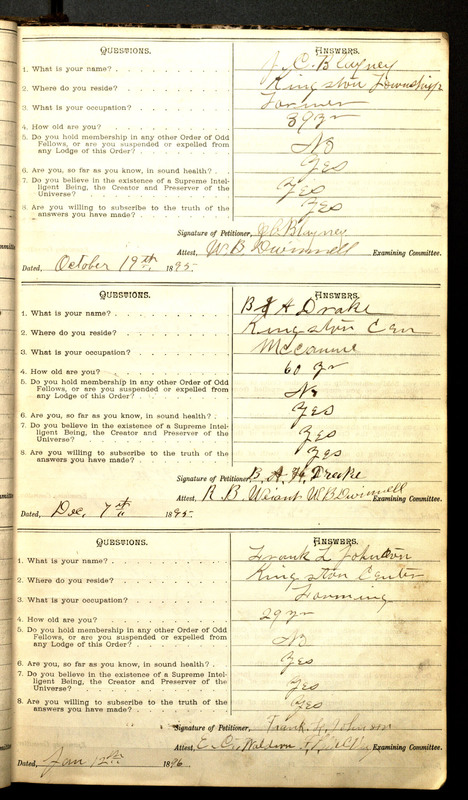 QUESTIONS. ANSWERS.
1. What is your name? J. C. Blayney
2. Where do you reside? Kingston Township
3. What is your occupation? Farmer
4. How old are you? 39 yr
5. Do you hold membership in any other Order of Odd
Fellows, or are you suspended or expelled from
any Lodge of this Order? No
6. Are you, so far as you know, in sound health? Yes
7. Do you believe in the existence of a Supreme Intel-
ligent Being, the Creator and Preserver of the
Universe? Yes
8. Are you willing to subscribe to the truth of the
answers you have made? Yes
Signature of Petitioner, J C Blayney
Attest, W. B. Dwinnell Examining Committee.
Dated, October 19th 1895.
QUESTIONS. ANSWERS.
1. What is your name? B A H Drake
2. Where do you reside? Kingston Cen
3. What is your occupation?
4. How old are you? 60 yr
5. Do you hold membership in any other Order of Odd
Fellows, or are you suspended or expelled from
any Lodge of this Order? No
6. Are you, so far as you know, in sound health? Yes
7. Do you believe in the existence of a Supreme Intel-
ligent Being, the Creator and Preserver of the
Universe? Yes
8. Are you willing to subscribe to the truth of the
answers you have made? Yes
Signature of Petitioner, B. A. H. Drake
Attest, R. B. Weiant W B Dwinnell Examining Committee.
Dated, Dec, 7th 1895.
QUESTIONS. ANSWERS.
1. What is your name? Frank L Johnson
2. Where do you reside? Kingston Center
3. What is your occupation? Farming
4. How old are you? 29 yr
5. Do you hold membership in any other Order of Odd
Fellows, or are you suspended or expelled from
any Lodge of this Order? No
6. Are you, so far as you know, in sound health? Yes
7. Do you believe in the existence of a Supreme Intel-
ligent Being, the Creator and Preserver of the
Universe? Yes
8. Are you willing to subscribe to the truth of the
answers you have made? Yes
Signature of Petitioner, Frank L. Johnson
Attest, E. C. Waldron Examining Committee.
Dated, Jan 12th 1896.